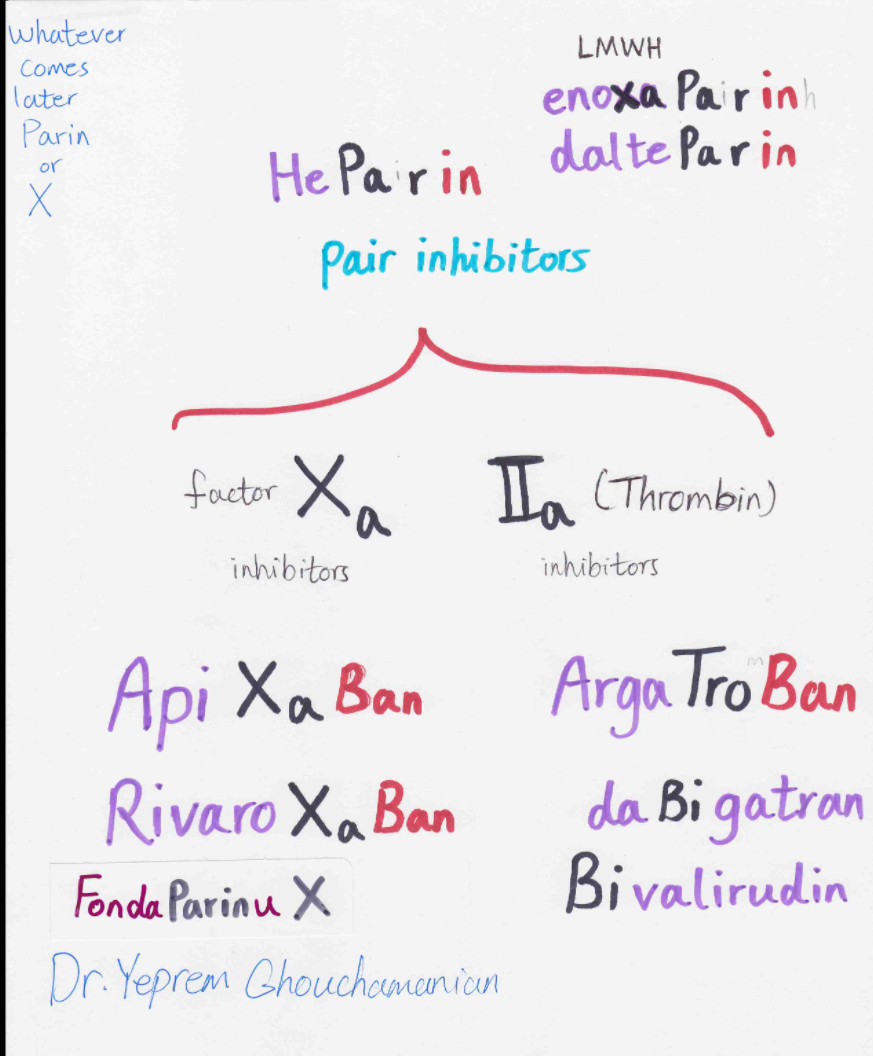 Whatever
comes
later
Parin
or
X
LMWH
enoxa Pairinh
dalteParin
HePairin
pair inhibitors
factor Xa
inhibitors
IIa (Thrombin)
inhibitors
Api XaBan
RivaroXaBan
FondaParinuX
ArgaTromBan
daBigatran
Bivalirudin
Dr. Yeprem Ghouchamanian